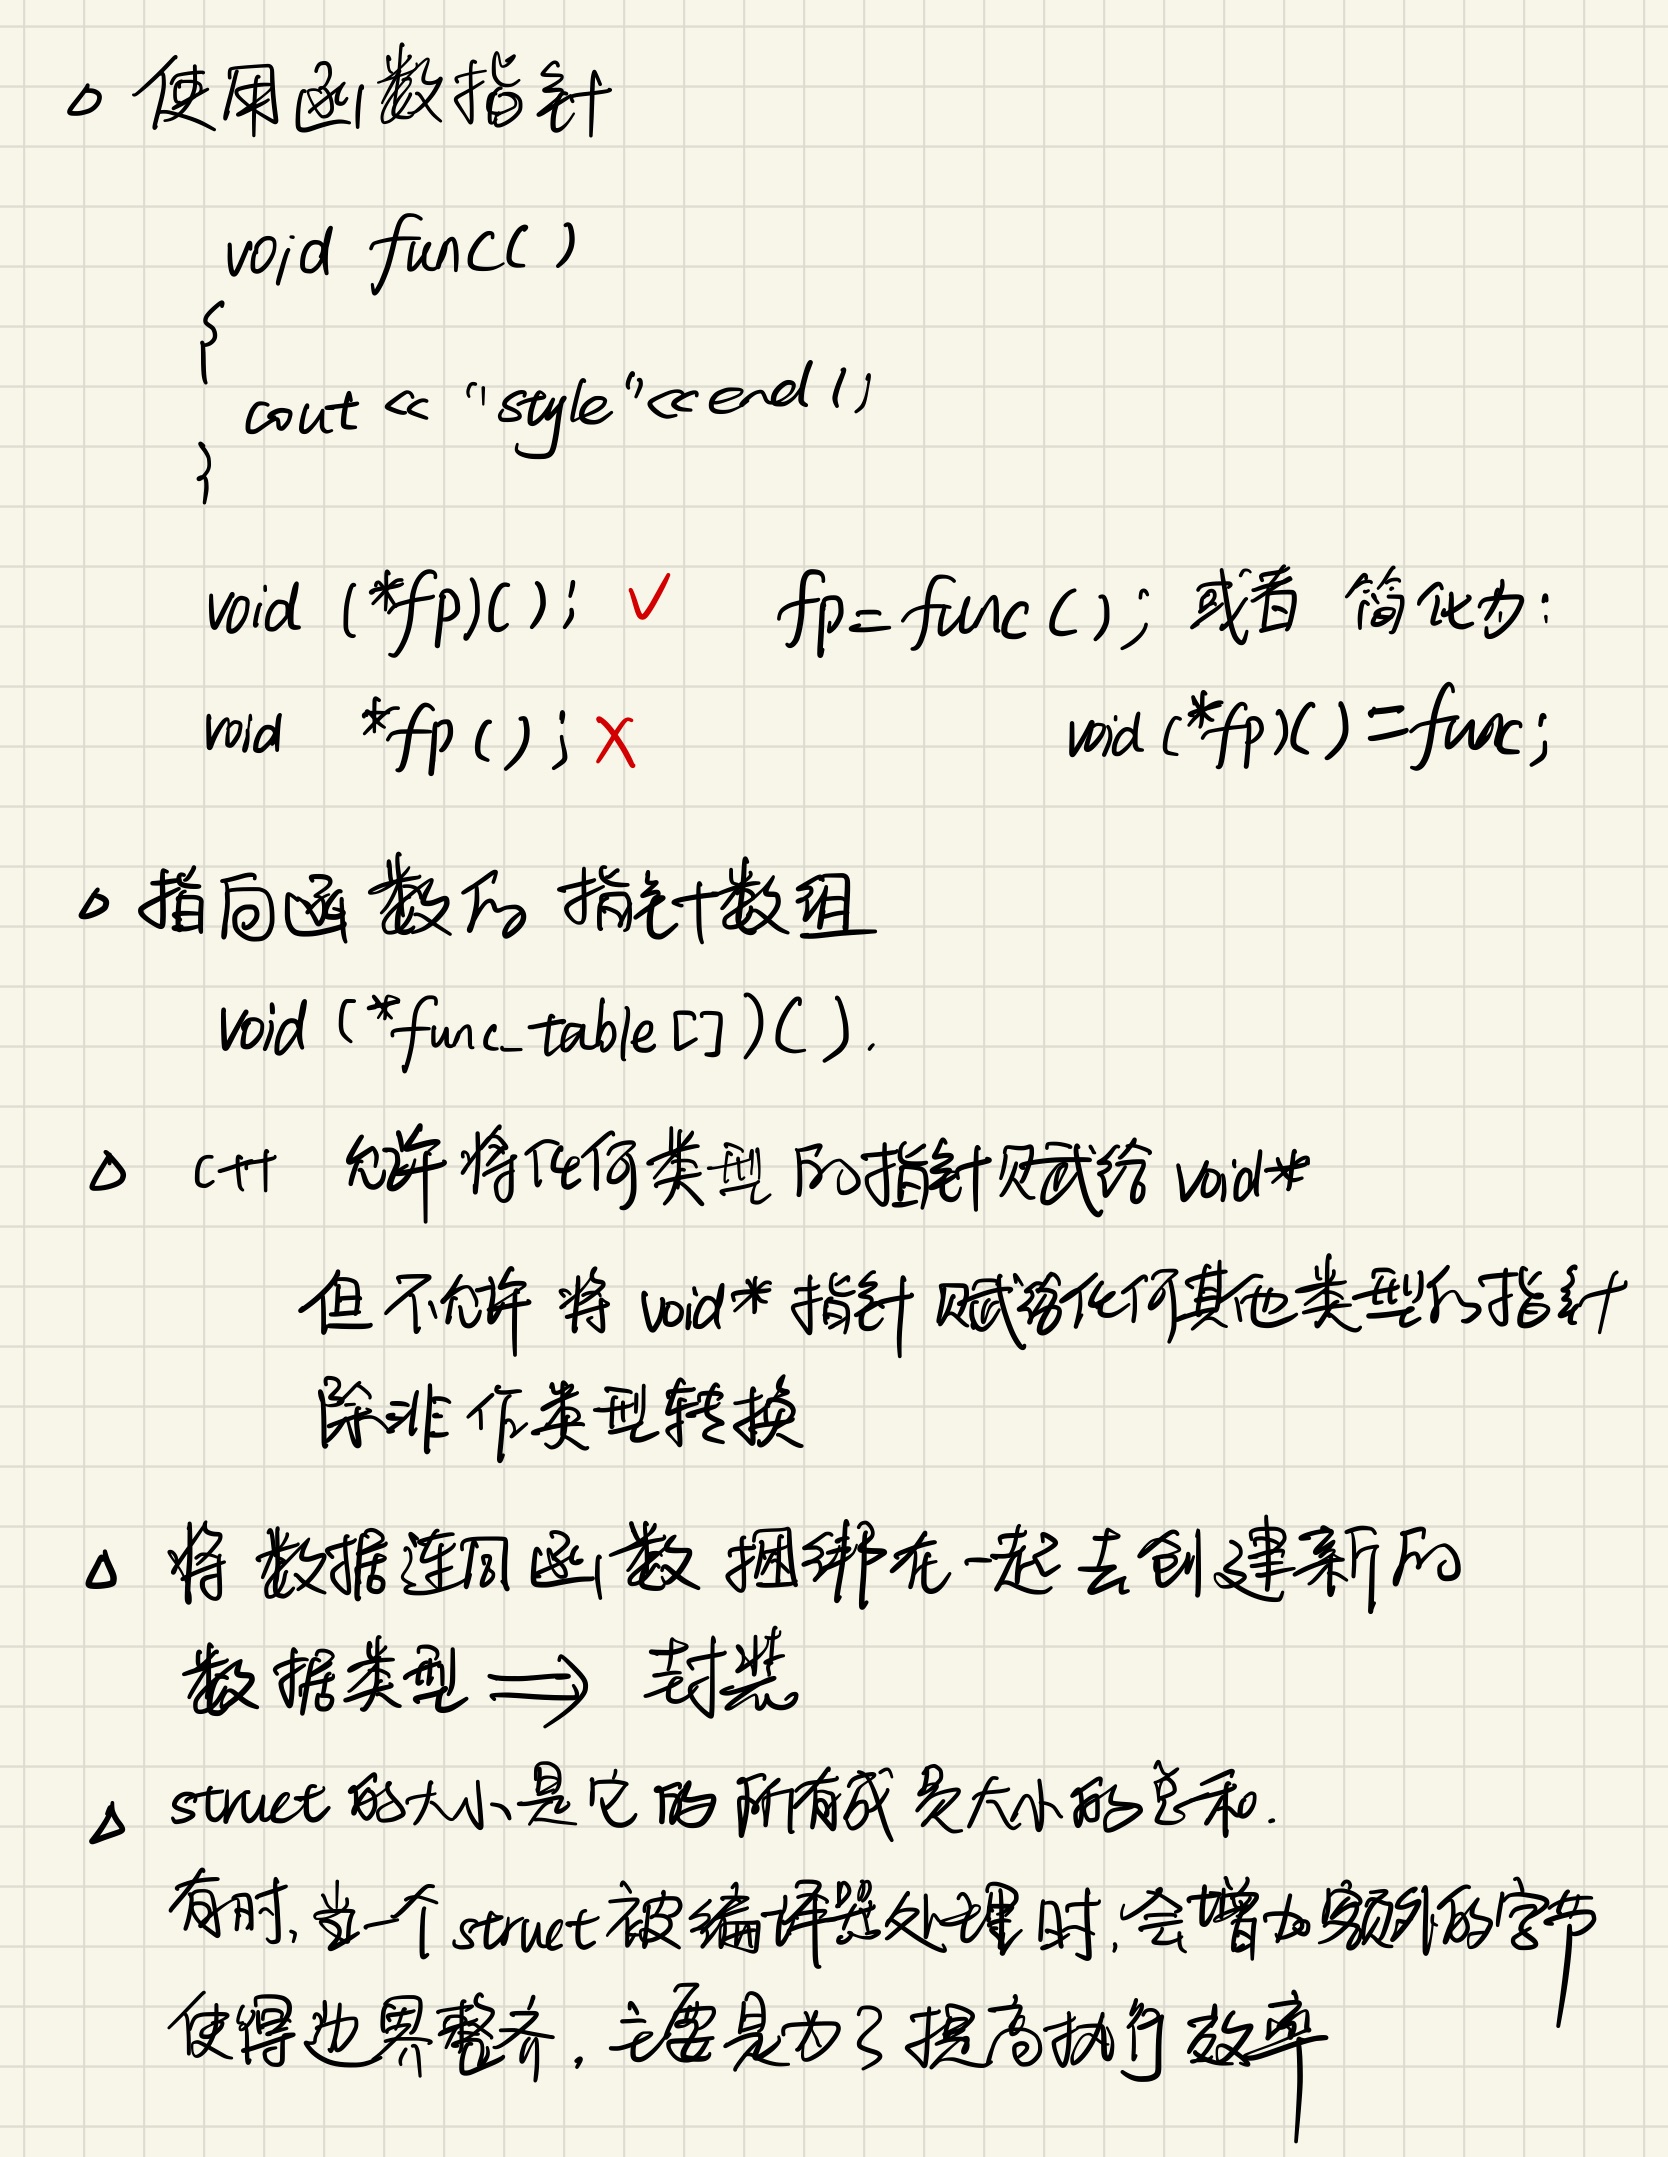 △ 使用函数指针
void func()
{
cout << "style"<<endl;
}
void (*fp)(); ✓ fp=func(); 或者 简化为:
void *fp(); ✗ void(*fp)()=func;
△ 指向函数的指针数组
void (*func_table[])().
△ C++ 允许将任何类型的指针赋给 void*
但不允许将 void* 指针赋给任何其他类型的指针
除非作类型转换
△ 将数据连同函数捆绑在一起去创建新的
数据类型 ⟹ 封装
△ struct的大小是它的所有成员大小的总和.
有时,当一个struct被编译器处理时,会增加额外的字节
使得边界整齐,主要是为了提高执行效率